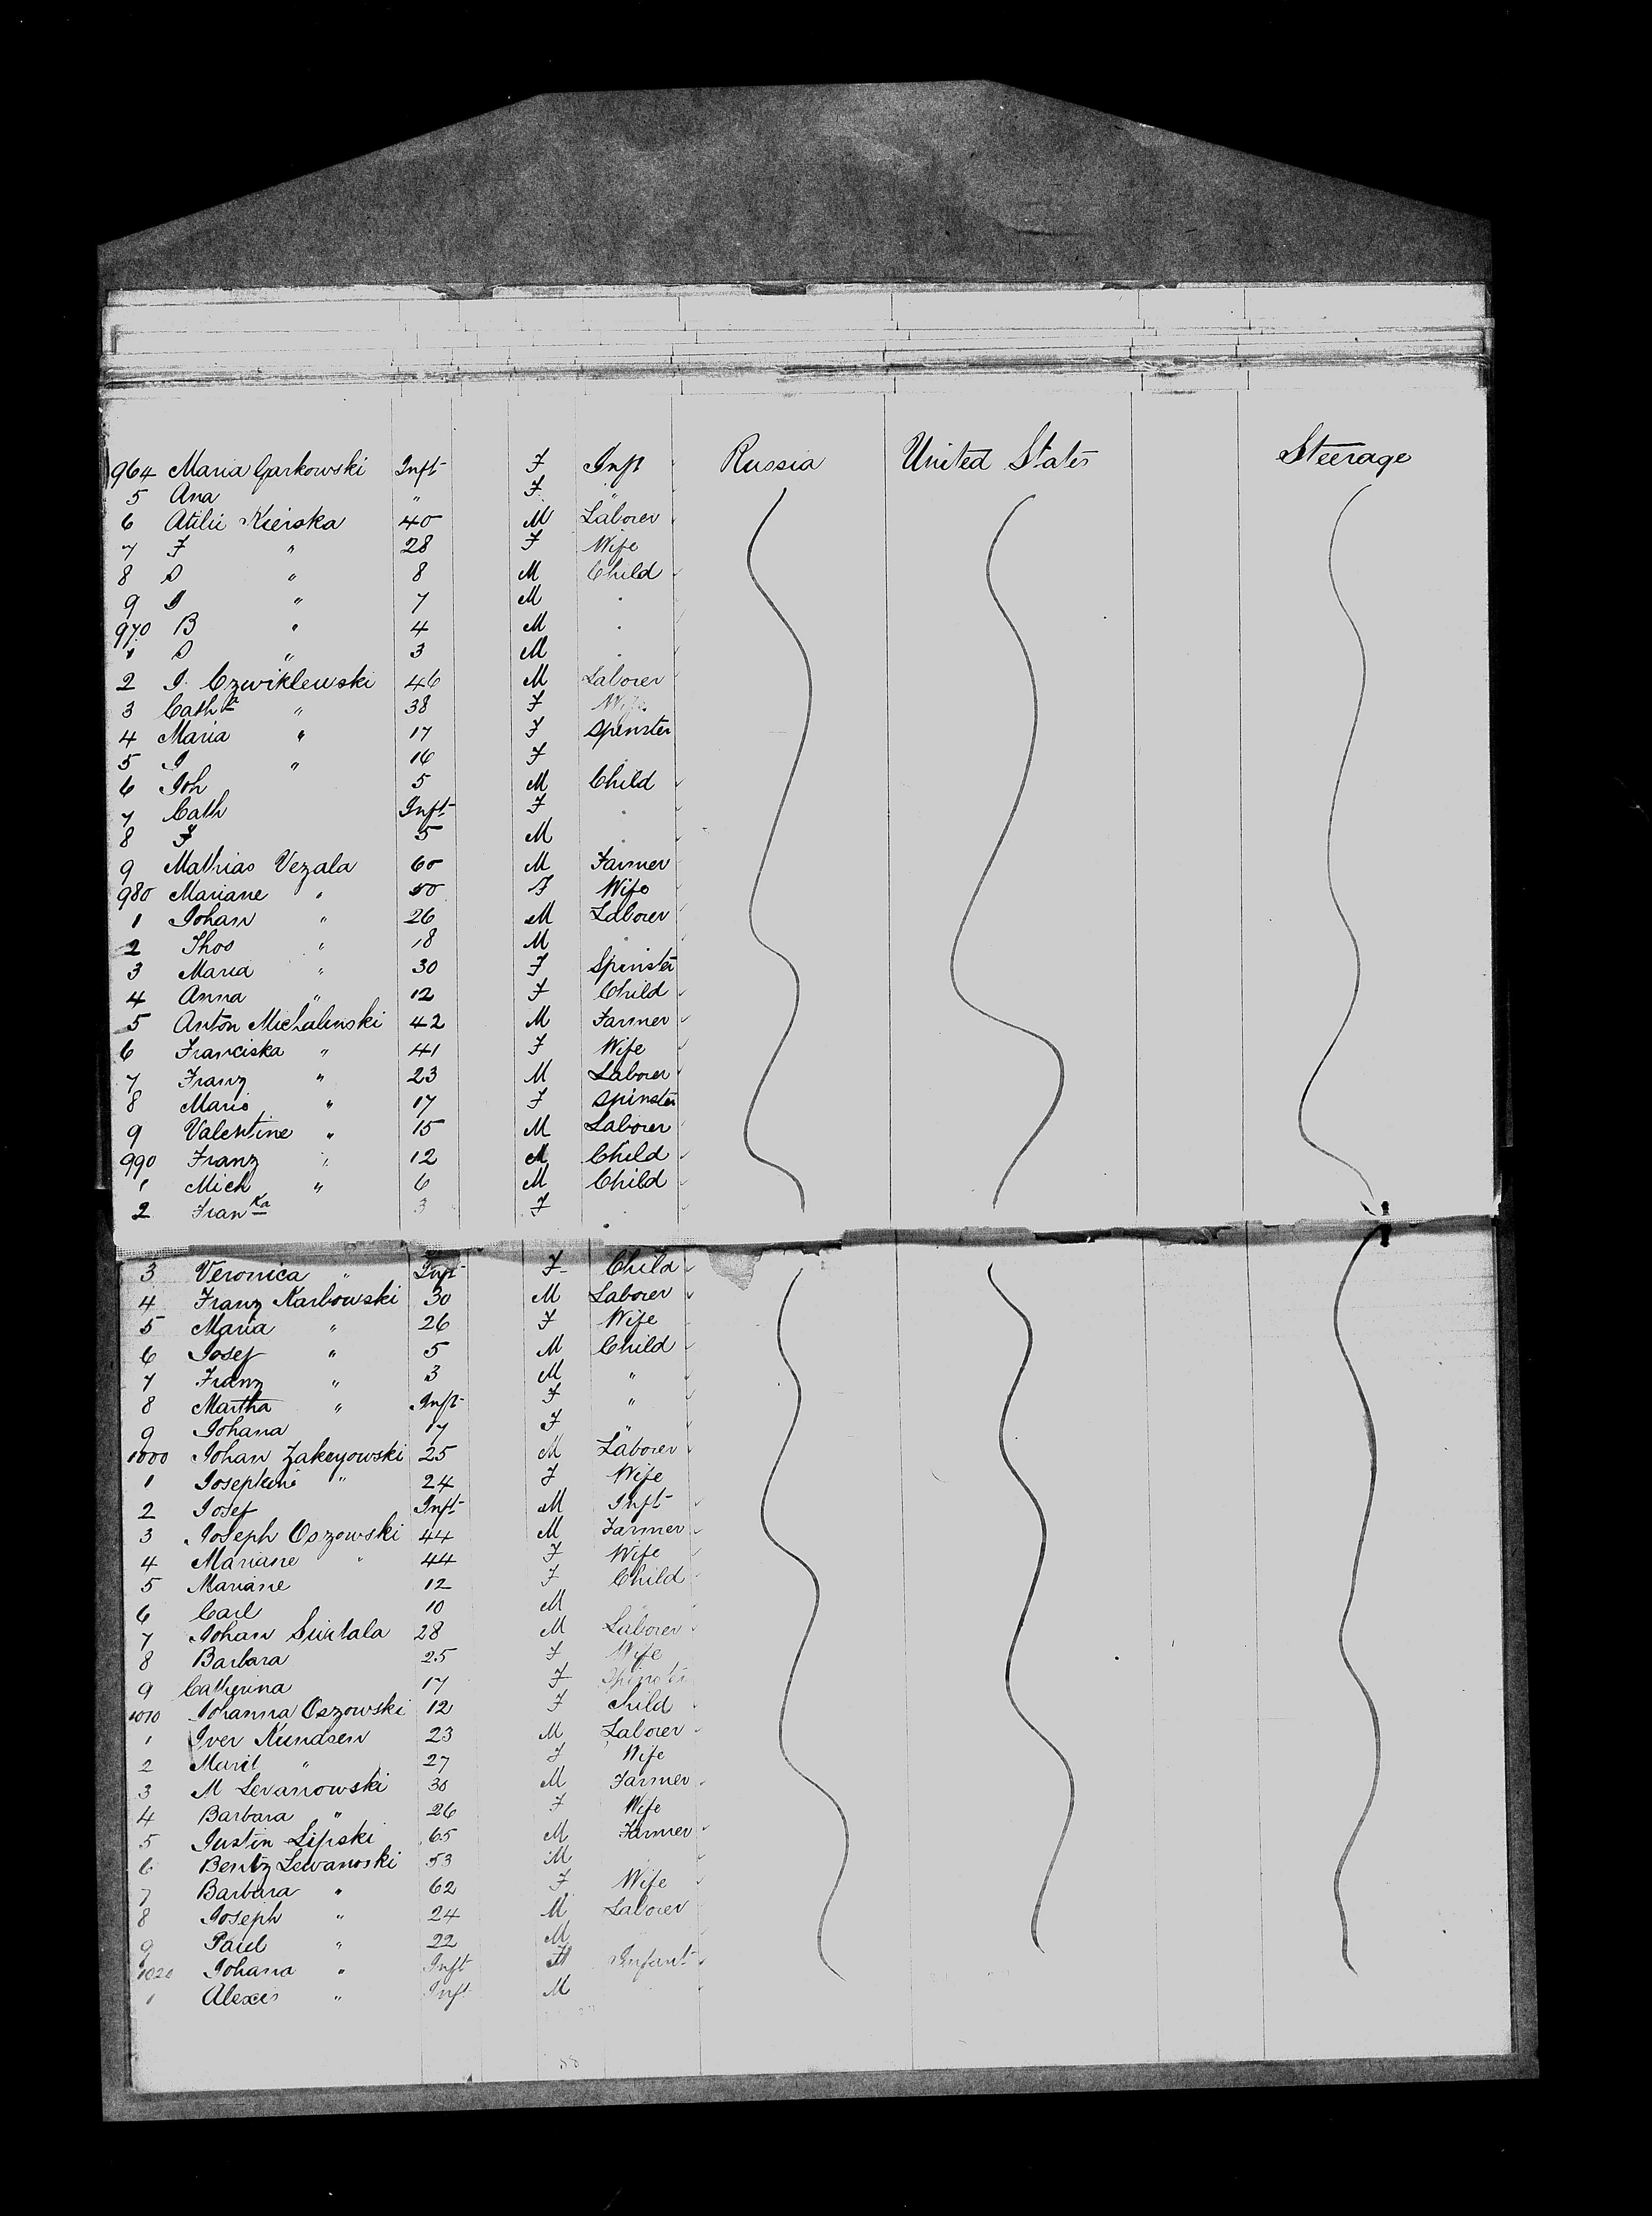 964 Maria Garkowski Inft F Inft Russia United States Steerage
5 Ana " F "
6 Atilie Kierska 40 M Laborer
7 F " 28 F Wife
8 S " 8 M Child
9 I " 7 M "
970 B " 4 M "
1 S " 3 M "
2 I. Czwiklewski 46 M Laborer
3 Cath " 38 F Wife
4 Maria " 17 F Spinster
5 I " 16 F "
6 Joh 5 M Child
7 Cath Inft F "
8 F 5 M "
9 Mathias Vezala 60 M Farmer
980 Mariane " 50 F Wife
1 Johan " 26 M Laborer
2 Thos " 18 M "
3 Maria " 30 F Spinster
4 Anna " 12 F Child
5 Anton Michalinski 42 M Farmer
6 Franciska " 41 F Wife
7 Franz " 23 M Laborer
8 Marie " 17 F Spinster
9 Valentine " 15 M Laborer
990 Franz " 12 M Child
1 Mich " 6 M Child
2 Franka 3 F "
3 Veronica " Inft F Child
4 Franz Karbowski 30 M Laborer
5 Maria " 26 F Wife
6 Josef " 5 M Child
7 Franz " 3 M "
8 Martha " Inft F "
9 Johana 17 F "
1000 Johan Zakeyowski 25 M Laborer
1 Josephine " 24 F Wife
2 Josef Inft M Inft
3 Joseph Oszowski 44 M Farmer
4 Mariane " 44 F Wife
5 Mariane 12 F Child
6 Carl 10 M "
7 Johan Suwtala 28 M Laborer
8 Barbara 25 F Wife
9 Catherina 17 F Spinster
1010 Johanna Oszowski 12 F Child
1 Iver Kundsen 23 M Laborer
2 Marit " 27 F Wife
3 M Levanowski 30 M Farmer
4 Barbara " 26 F Wife
5 Justin Lipski 65 M Farmer
6 Bentz Lewanoski 53 M
7 Barbara " 62 F Wife
8 Joseph " 24 M Laborer
9 Paul " 22 M
1020 Johana " Inft Infant
1 Alexes " Inft M